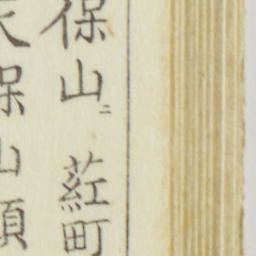 保山ニ葒町
天保山頂